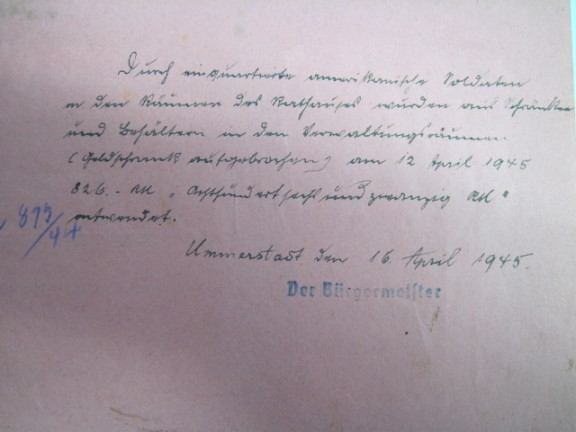 Durch einquartierte amerikanische Soldaten
in den Räumen des Rathauses wurden aus Schränken
und Behältern in den Verwaltungsräumen
(Geldschrank aufgebrochen) am 12 April 1945
826.- RM „Achthundertsechsundzwanzig RM"
entwendet.
Ummerstadt den 16. April 1945.
Der Bürgermeister